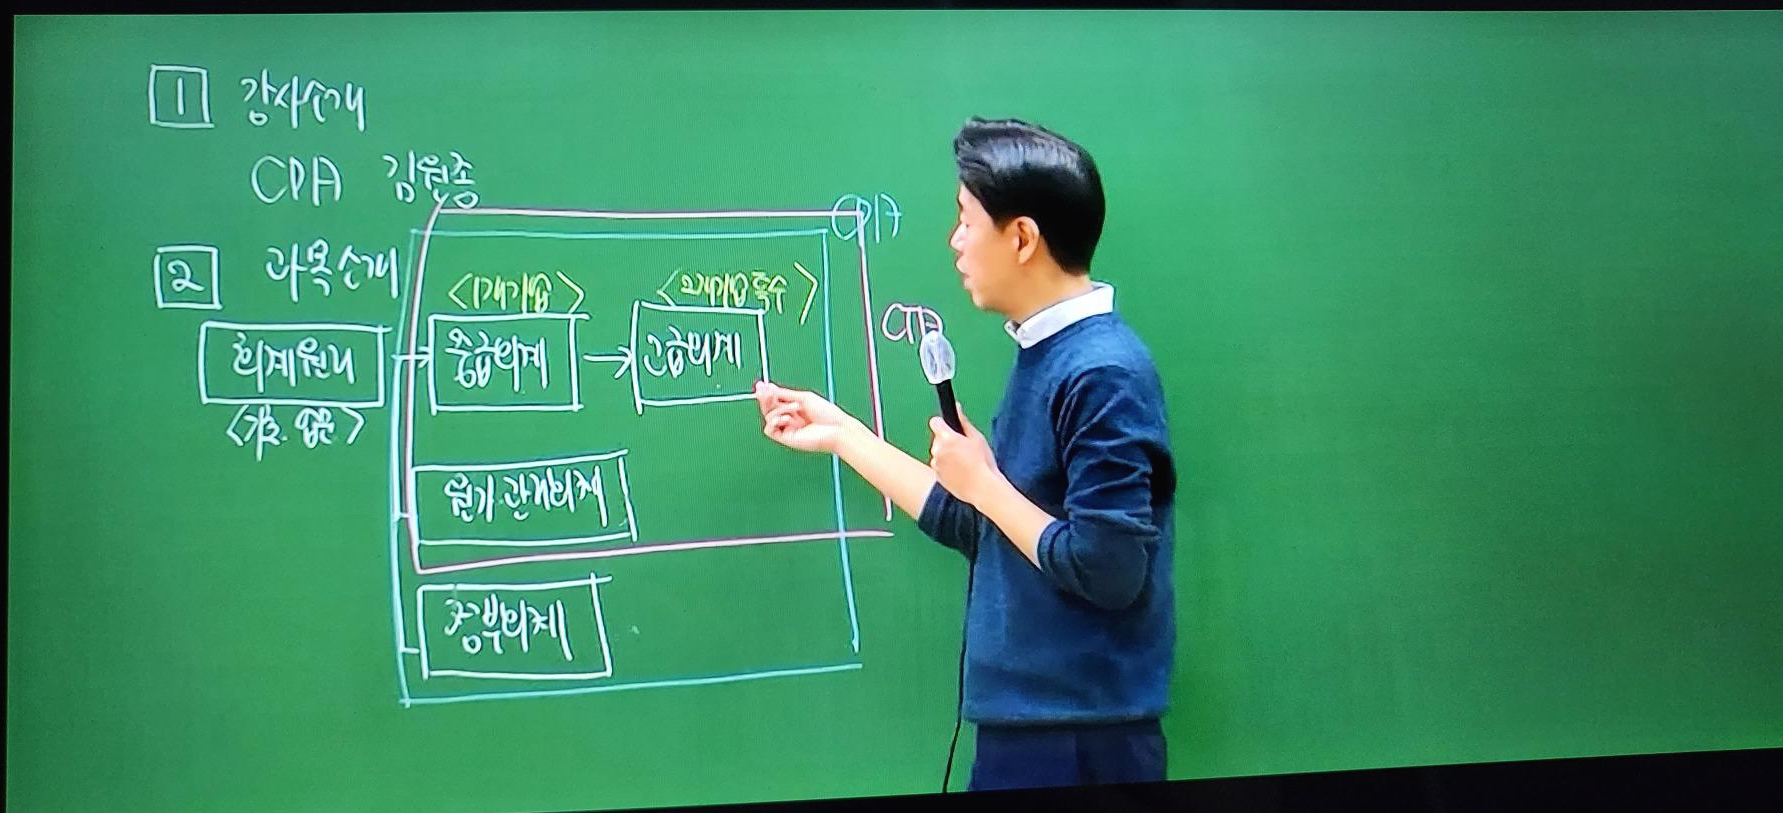 1 강사소개
CPA 김원종
CPA
2 과목소개
<1개기업>
회계원리
중급회계
고급회계
CTA
<기초 입문>
원가관리회계
정부회계